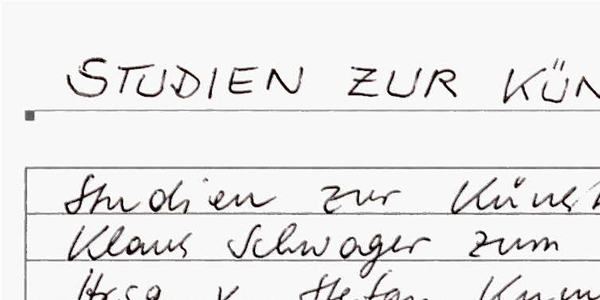 STUDIEN ZUR KÜN
Studien zur Küns
Klaus Schwager zum
Hrsg. v. Stefan